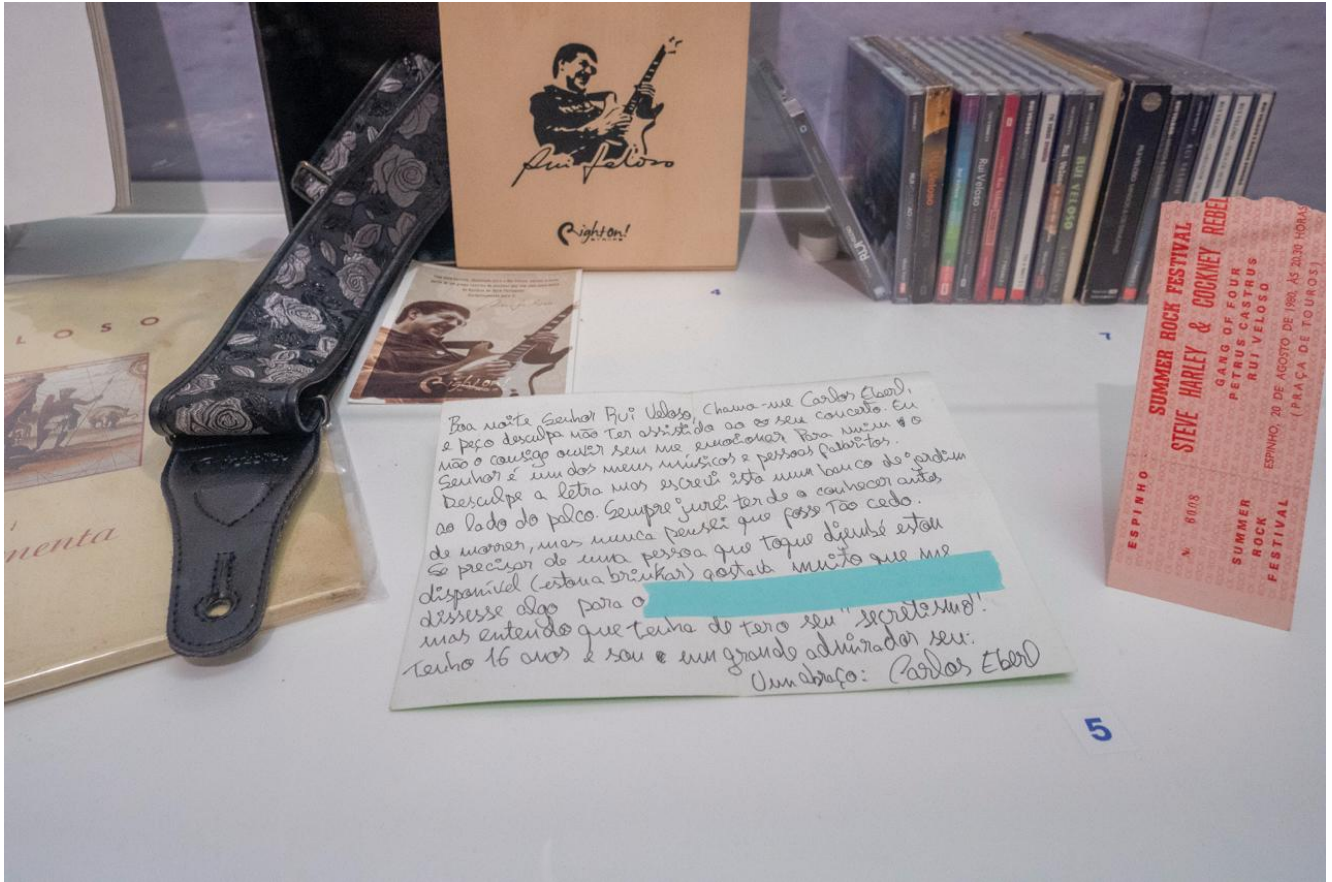 L O S O
menta
Rui Veloso
Right on!
STRAPS
Right on!
4
RUI
RUI VELOSO
Rui Veloso
7
Boa noite Senhor Rui Veloso, Chama-me Carlos Eberl,
e peço desculpa não ter assistido ao seu concerto. Eu
não o consigo ouvir sem me emocionar Para mim o
Senhor é um dos meus músicos e pessoas favoritos.
Desculpe a letra mas escrevi isto num banco de jardim
ao lado do palco. Sempre jurei ter de o conhecer antes
de morrer, mas nunca pensei que fosse tão cedo.
Se precisar de uma pessoa que toque djembé estou
disponível (estava a brinkar) gostava muito que me
dissesse algo para o
mas entendo que tenha de ter o seu "secretismo".
Tenho 16 anos e sou um grande admirador seu.
Um abraço: Carlos Eberl
5
ESPINHO SUMMER ROCK FESTIVAL
STEVE HARLEY & COCKNEY REBEL
GANG OF FOUR
PETRUS CASTRUS
RUI VELOSO
ESPINHO, 20 DE AGOSTO DE 1980, ÀS 20.30 HORAS
(PRAÇA DE TOUROS)
Nº 6008
SUMMER
ROCK
FESTIVAL